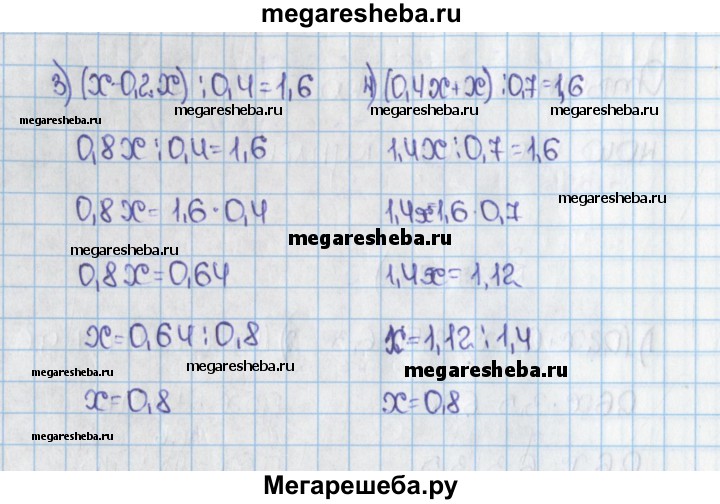 megaresheba.ru
3) (x-0,2x):0,4=1,6
4) (0,4x+x):0,7=1,6
megaresheba.ru
megaresheba.ru
megaresheba.ru
0,8x:0,4=1,6
1,4x:0,7=1,6
0,8x=1,6·0,4
1,4x=1,6·0,7
megaresheba.ru
megaresheba.ru
megaresheba.ru
0,8x=0,64
1,4x=1,12
megaresheba.ru
megaresheba.ru
x=0,64:0,8
x=1,12:1,4
megaresheba.ru
megaresheba.ru
megaresheba.ru
x=0,8
x=0,8
megaresheba.ru
Мегарешеба.ру